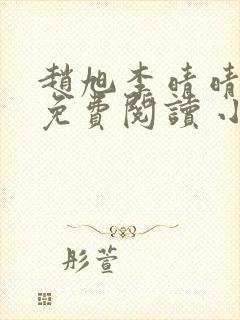 趙旭李晴晴
免費閱讀小
彤萱